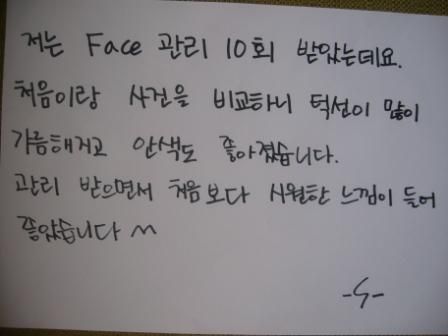 저는 Face 관리 10회 받았는데요.
처음이랑 사건을 비교하니 턱선이 많이
갸름해지고 안색도 좋아졌습니다.
관리 받으면서 처음보다 시원한 느낌이 들어
좋았습니다 ^^
-S-